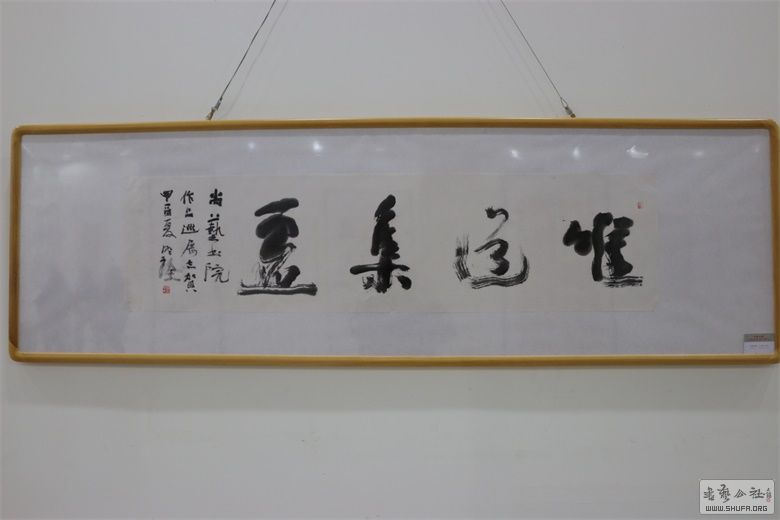 惟道集虚
尚藝书院
作品巡展志贺
甲夏
书艺公社
WWW.SHUFA.ORG